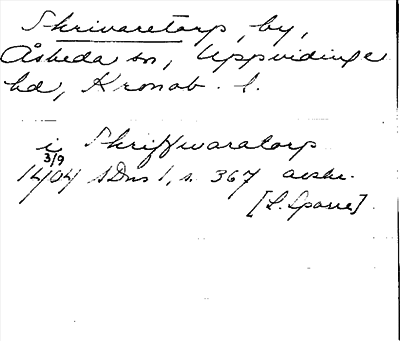 Skrivaretorp, by,
Åsheda sn, Uppvidinge
hd, Kronob. l.
i Skriffwaratorp
3/9
1404 SDns 1, s. 367 avskr.
[L. Sparre].